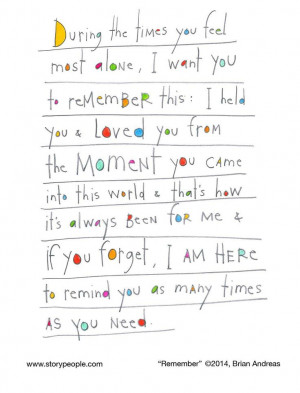 During the times you feel
most alone, I want you
to reMeMBeR this: I held
you & Loved you from
the MoMeNT you came
into this world & that's how
it's always BEEN for me &
if you forget, I AM HeRe
to remind you as many times
AS you NeeD.
www.storypeople.com “Remember” ©2014, Brian Andreas